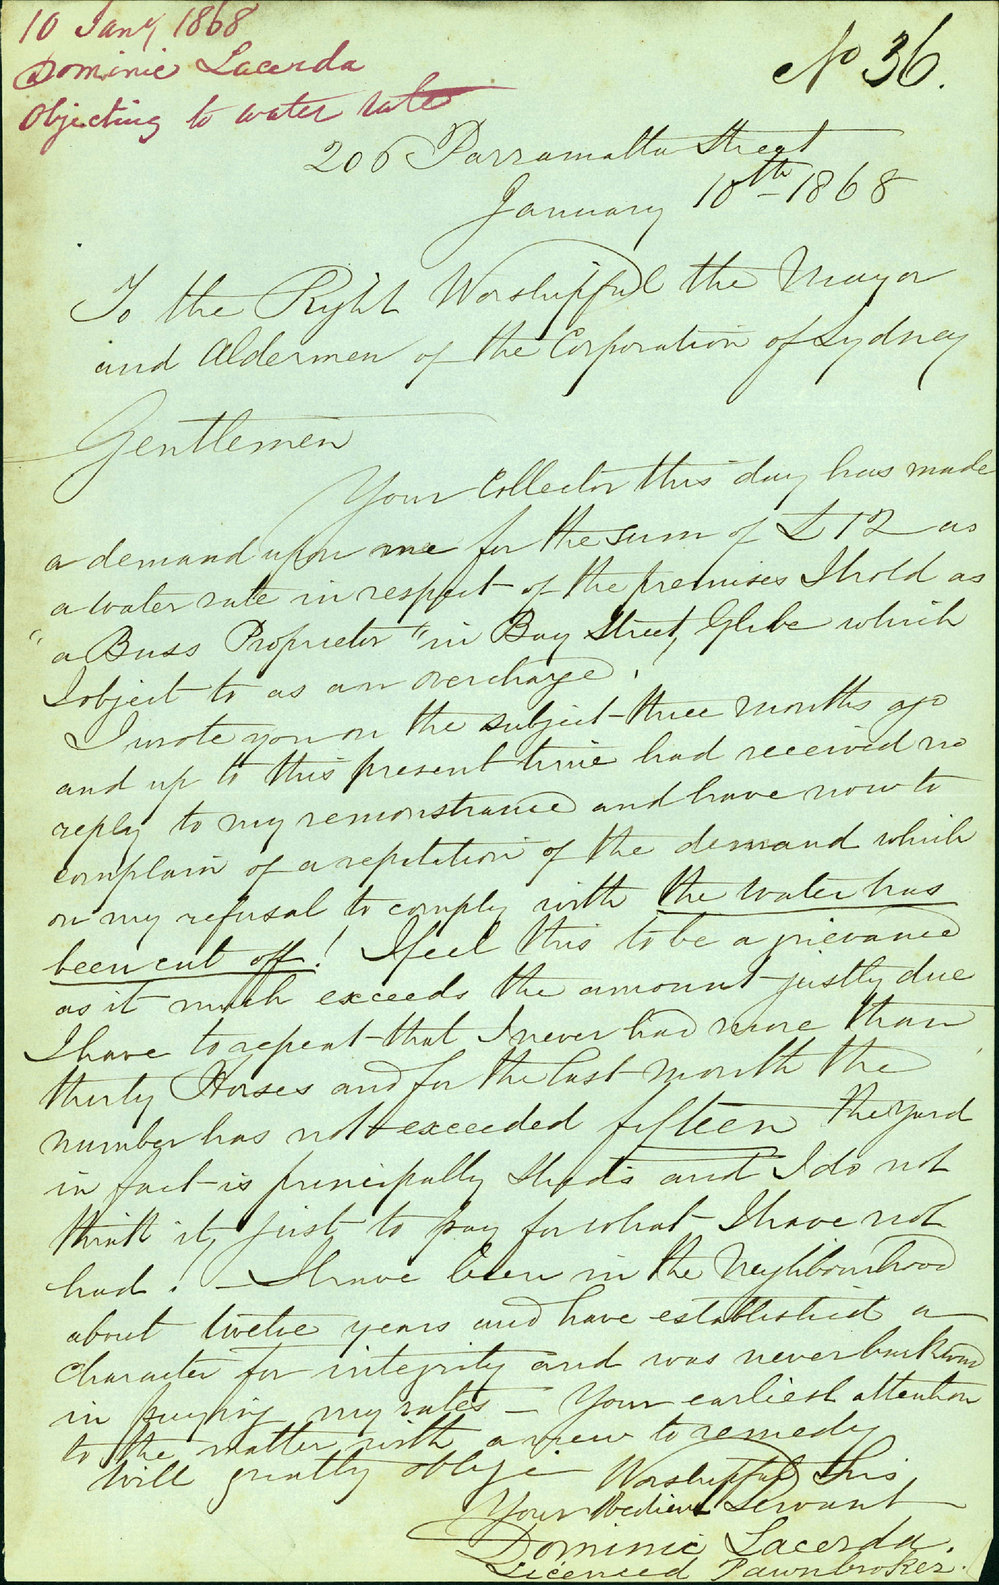 10 Jany 1868
Dominic Lacerda
Objecting to water rate
No 36.
206 Parramatta Street
January 10th 1868
To the Right Worshipful the Mayor
and Aldermen of the Corporation of Sydney
Gentlemen
Your Collector this day has made
a demand upon me for the sum of £12 as
a water rate in respect of the premises I hold as
"a Buss Proprietor" in Bay Street, Glebe which
I object to as an overcharge.
I wrote you on the subject three months ago
and up to this present time had received no
reply to my remonstrance and have now to
complain of a repetition of the demand which
on my refusal to comply with the water has
been cut off! I feel this to be a grievance
as it much exceeds the amount justly due
I have to repeat that I never had more than
thirty Horses and for the last month the
number has not exceeded fifteen the yard
in fact is principally Sheds and I do not
think it just to pay for what I have not
had! — I have been in the Neighbourhood
about twelve years and have established a
Character for integrity and was never backward
in paying my rates — Your earliest attention
to the matter with a view to remedy
will greatly oblige Worshipful Sirs
Your Obedient Servant
Dominic Lacerda.
Licenced Pawnbroker.